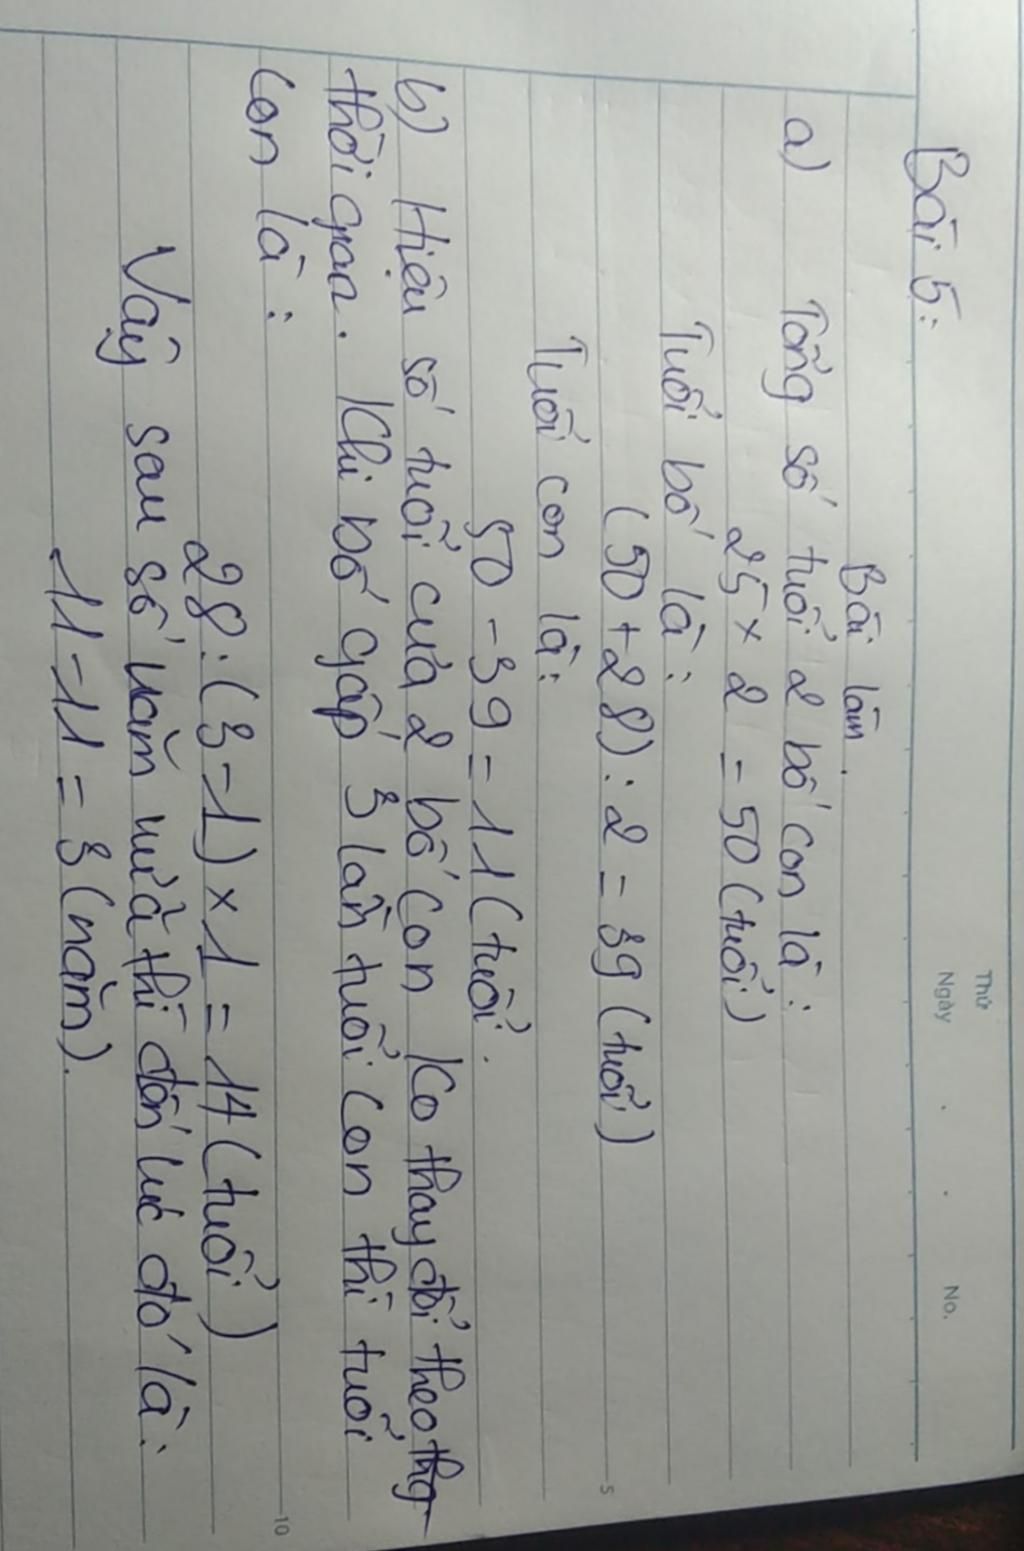 Thứ
Ngày . . No.
Bài 5:
Bài làm.
a) Tổng số tuổi 2 bố con là:
25 × 2 = 50 (tuổi)
Tuổi bố là:
(50 + 28) : 2 = 39 (tuổi)
Tuổi con là:
50 - 39 = 11 (tuổi.
b) Hiệu số tuổi của 2 bố con ko thay đổi theo
thời gian. Khi bố gấp 3 lần tuổi con thì tuổi
con là:
28 : (3 - 1) × 1 = 14 (tuổi)
Vậy sau số năm nữa thì đến lúc đó là:
11 - 11 = 3 (năm).
5
10